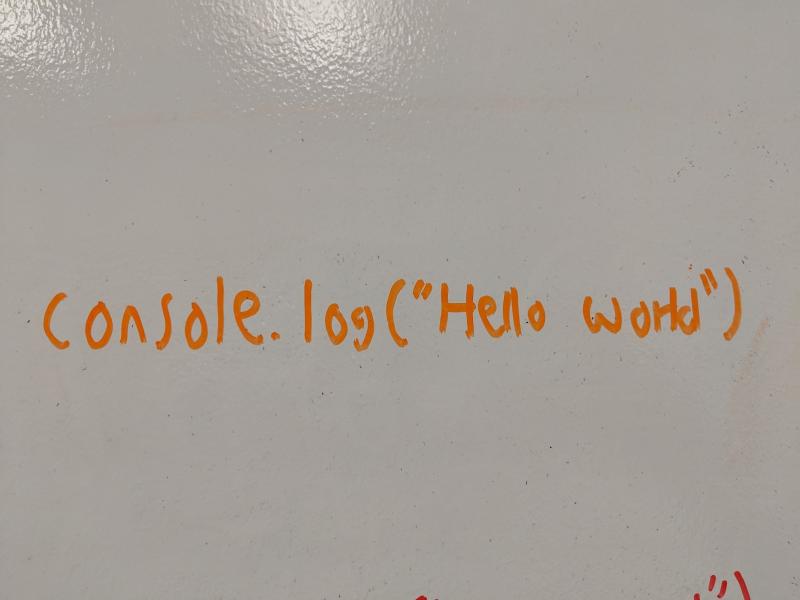 console.log("Hello world")